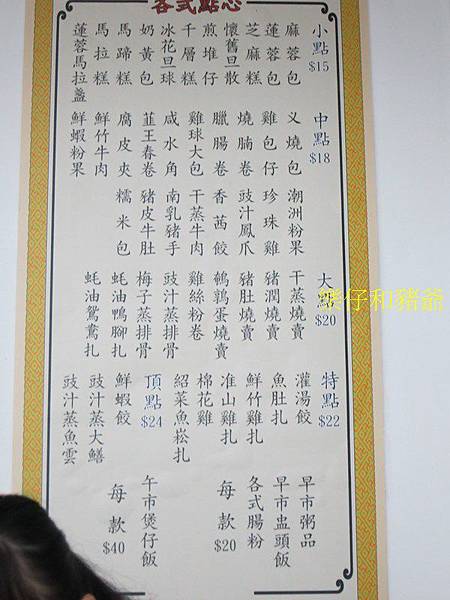 各式點心
小點 $15
麻蓉包
蓮蓉包
芝麻糕
懷舊旦散
煎堆仔
千層糕
冰花旦球
奶黃包
馬蹄糕
馬拉糕
蓮蓉馬拉盞
中點 $18
义燒包
雞包仔
燒腩卷
臘腸卷
雞球大包
咸水角
韮王春卷
腐皮夾
鮮竹牛肉
鮮蝦粉果
潮洲粉果
珍珠雞
豉汁鳳爪
香茜餃
干蒸牛肉
南乳豬手
豬皮牛肚
糯米包
大點 $20
干蒸燒賣
豬潤燒賣
豬肚燒賣
鵪鶉蛋燒賣
雞絲粉卷
豉汁蒸排骨
梅子蒸排骨
蚝油鴨腳扎
蚝油鴛鴦扎
特點 $22
灌湯餃
魚肚扎
鮮竹雞扎
准山雞扎
棉花雞
紹菜魚崧扎
頂點 $24
鮮蝦餃
豉汁蒸大鱔
豉汁蒸魚雲
早市粥品
早市盅頭飯
各式腸粉
每款 $20
午市煲仔飯
每款 $40
樂仔和豬爺